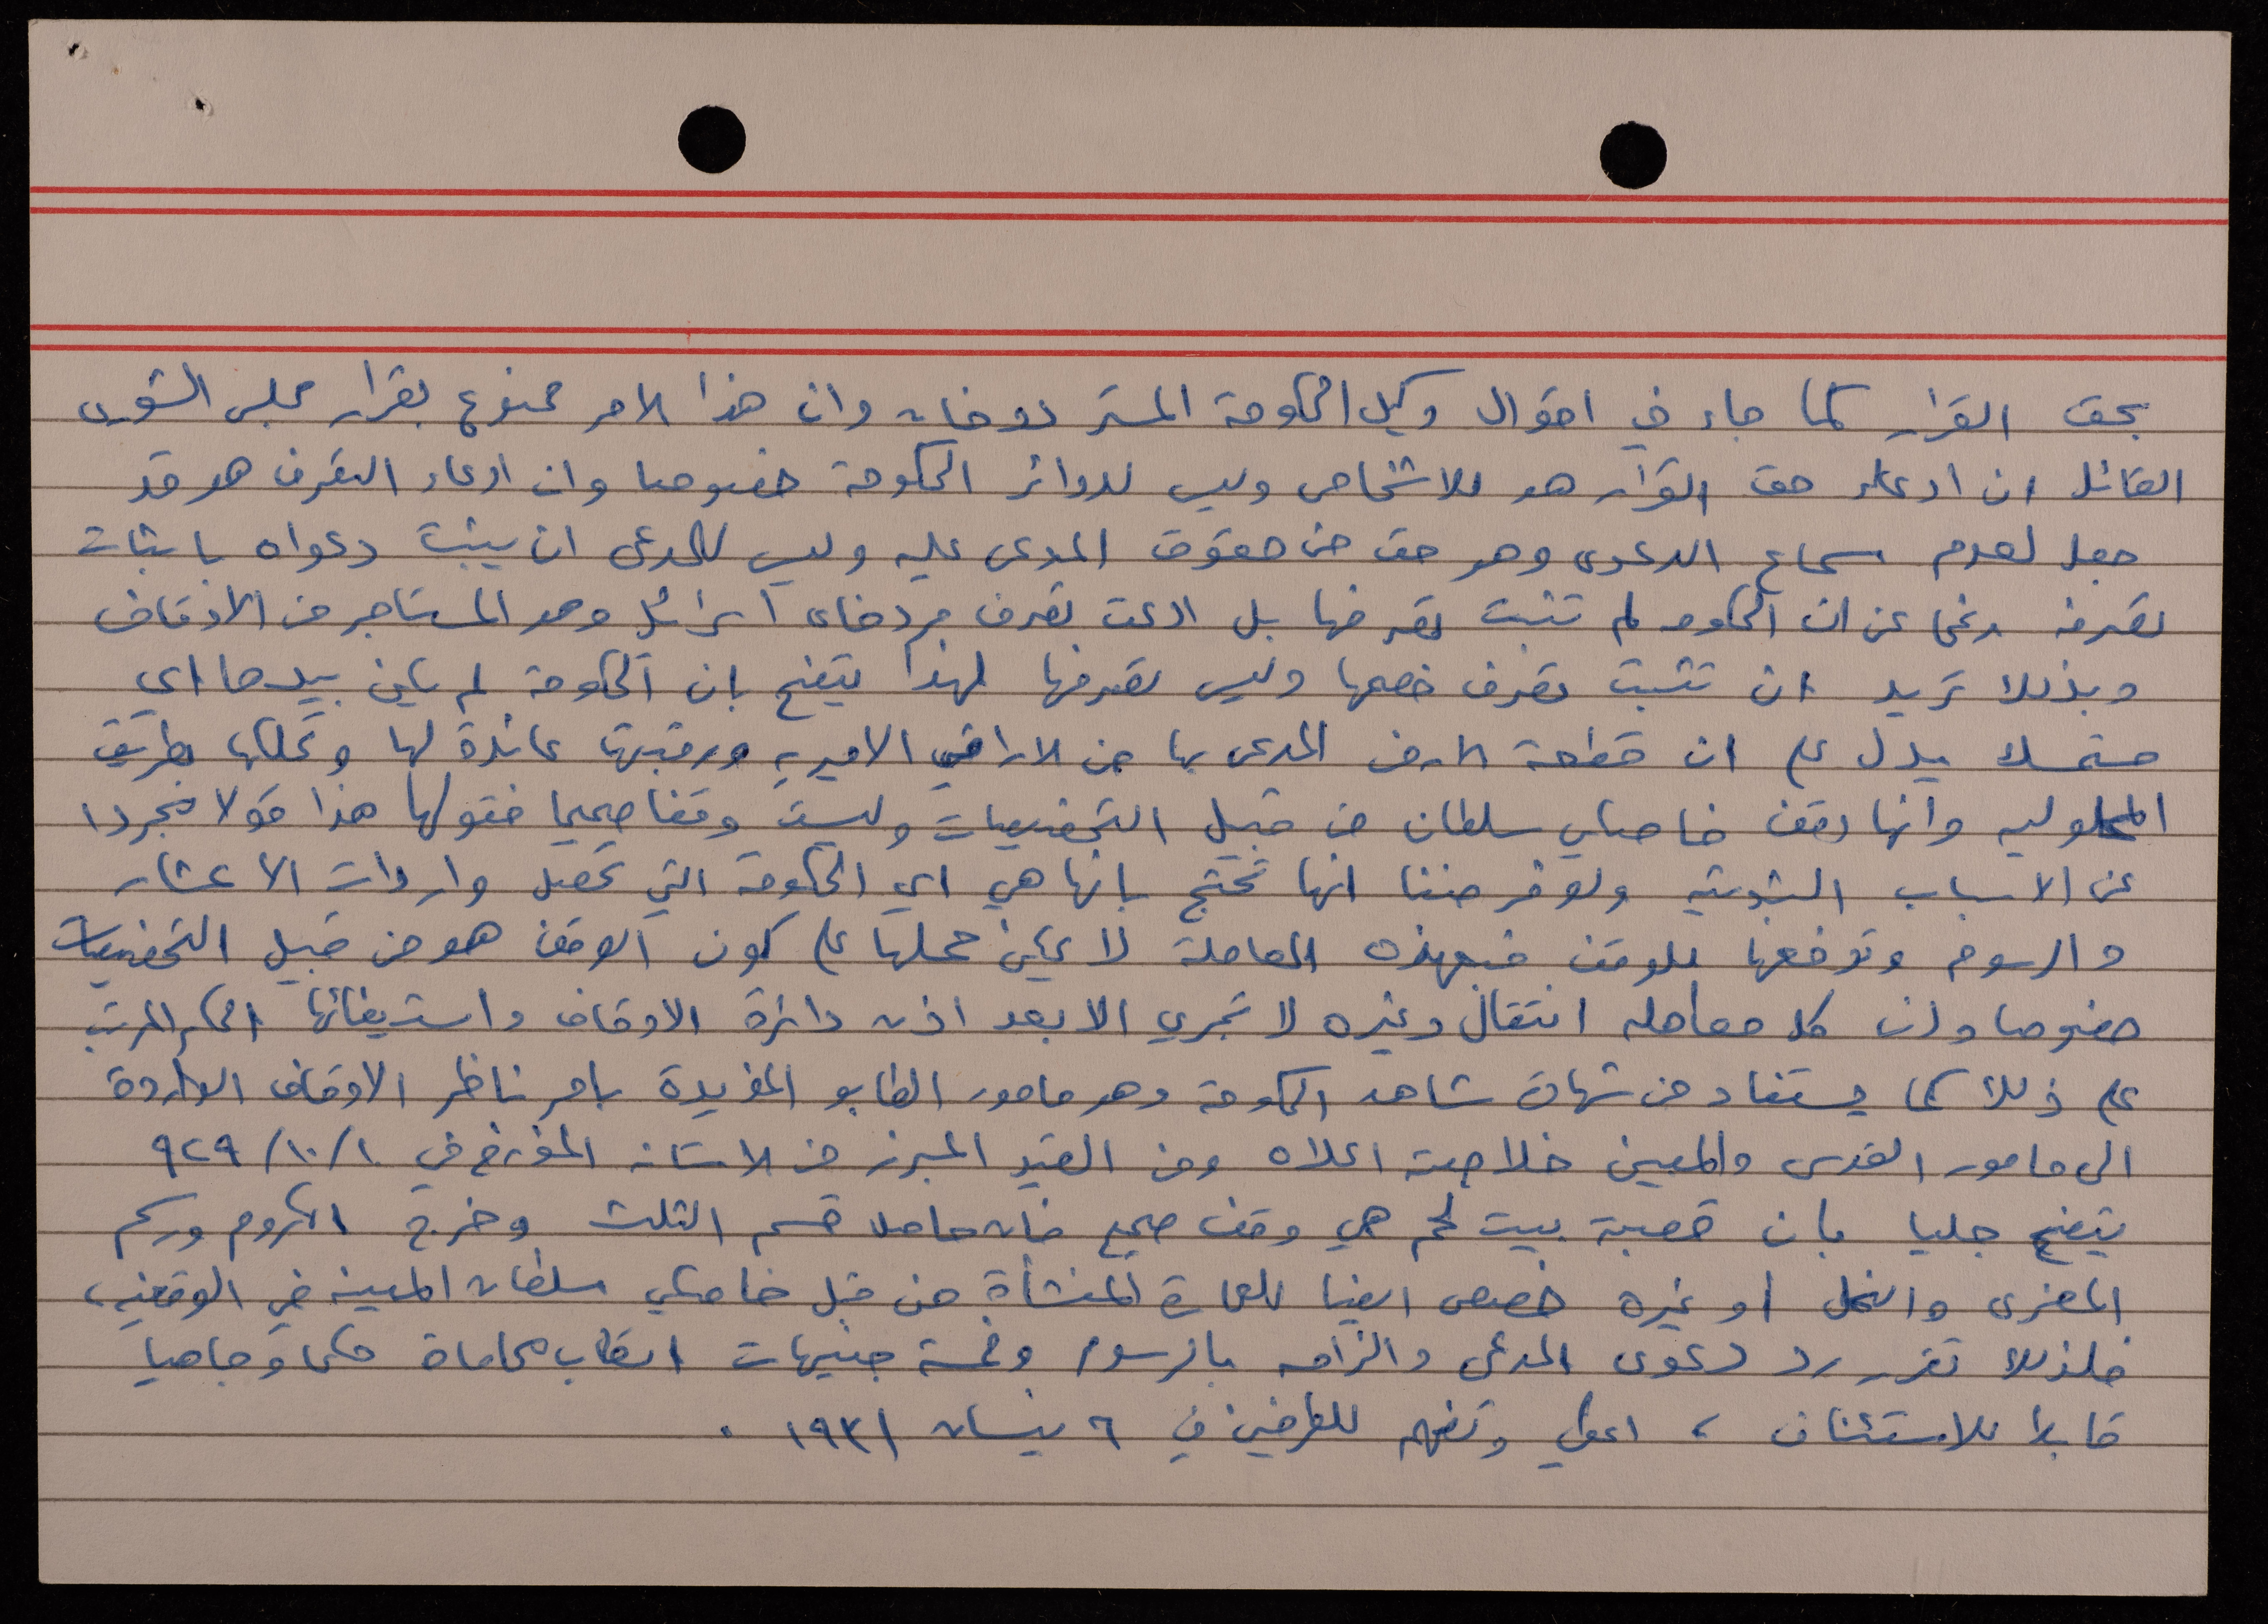 بحق القرار كما جاء في اقوال وكيل الحكومة المستر دوخان وان هذا الامر ممنوع بقرار مجلس الشورى
القائل ان ادعاء حق القرار هو للاشخاص وليس لدوائر الحكومة خصوصا وان ادعاء التصرف هو قد
جعل لعدم سماع الدعوى وهو حق من حقوق المدعى عليه وليس للمدعى ان يثبت دعواه باثبات
تصرفه رغما عن ان الحكومه لم تثبت تصرفها بل ادعت تصرف مردخاى اسرائيل وهو المستاجر من الاوقاف
وبذلك تريد ان تثبت تصرف خصمها وليس تصرفها لهذا يتضح بان الحكومة لم يكن بيدها اي
مستمسك يدل على ان قطعة الارض المدعى بها من الاراضي الاميريه ورقبتها عائدة لها وتملكها بطريق
المحلوليه وانها وقف خاصكي سلطان من قبيل التخصيصات وليست وقفا صحيحا فقولها هذا قولا مجردا
عن الاسباب الثبوتيه ولو فرضنا انها تحتج بانها هي اي الحكومة التي تحصل واردات الاعشار
والرسوم وتدفعها للوقف فبهذه المعاملة لا يمكن حملها على كون الوقف هو من قبيل التخصيصات
خصوصا وان كل معامله انتقال وغيره لا تجري الا بعد اذن دائرة الاوقاف واستيفائها الحكر المرتب
على ذلك كما يستفاد من شهادة شاهد الحكومة وهو مامور الطابو المؤيدة بامر ناظر الاوقاف الواردة
الى مامور القدس والمبين خلاصته اعلاه ومن القيد المبرز من الاستانه المؤرخ في ١/١٠/٩٢٩
يتضح جليا بان قصبة بيت لحم هي وقف صحيح فان حاصل قسم الثلث وخرج الكروم ورسم
المعزى والنحل او غيره خصص ايضا للعمارة المنشأة من قبل خاصكي سلطان المبينه في الوقفيه،
فلذلك تقرر رد دعوى المدعى والزامه بالرسوم وخمسة جنيهات اتعاب محاماة حكما وجاهيا
قابلا للاستئناف ، اعطي وتفهم للطرفين في ٦ نيسان ١٩٣١ .